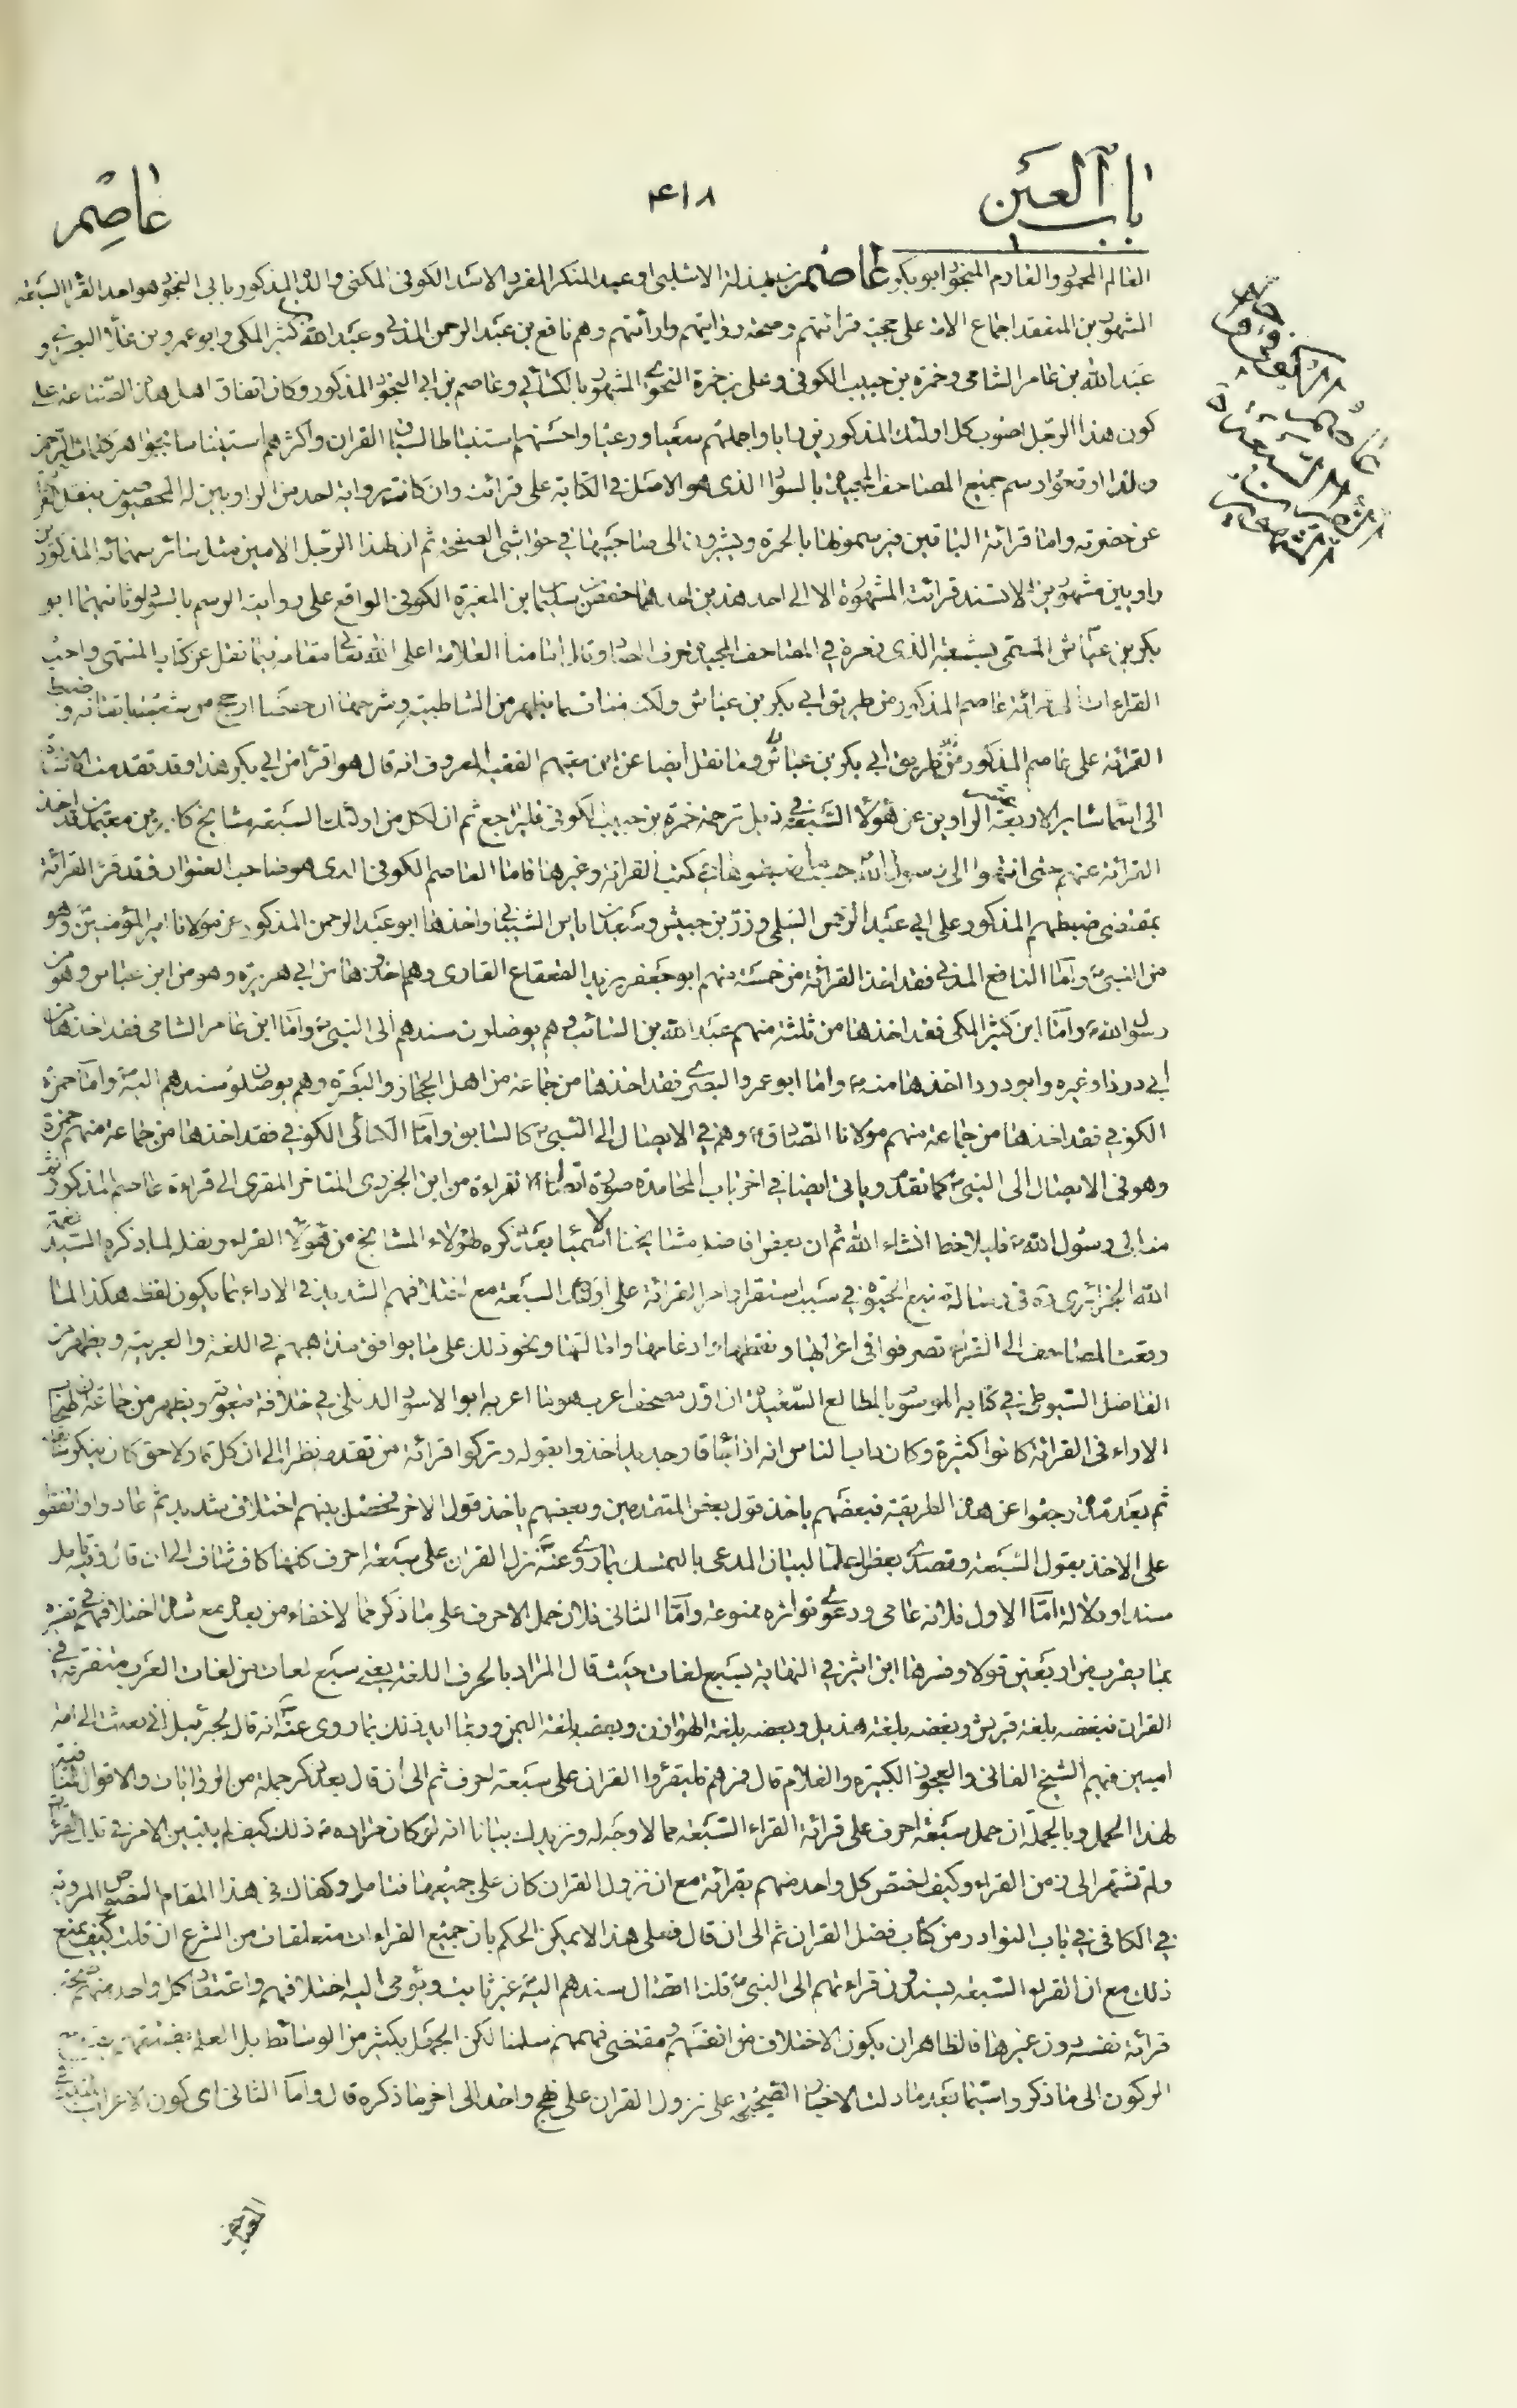 باب العين
۴۱۸
عاصم
العالم المحمود والعادم المنجود ابو بكر عاصم بن بهدلة الاسدى او عبد المنكر المفرد الاسدى الكوفى المكنى والده المذكور بابى النجود هو احد القراء السبعة
المشهورين المنعقد اجماع الامة على حجية قرائتهم وصحة رواياتهم وارائهم وهم نافع بن عبد الرحمن المدنى وعبد الله بن كثير المكى وابو عمرو بن علاء البصرى و
عبد الله بن عامر الشامى وحمزة بن حبيب الكوفى وعلى بن حمزة النحوى المشهور بالكسائى وعاصم بن ابى النجود المذكور وكان اتفاق اهل هذه الصناعة على
كون هذا الرجل اصوب كل اولئك المذكورين رايا واجملهم سعيا ورعيا واحسنهم استنباطا لسياق القران واكثرهم استيناسا
ولذا اوقعوا رسم جميع المصاحف المجيدة بالسواد الذى هو الاصل فى الكتابة على قرائته وان كانت برواية احد من الراويين له
عن حضرته واما قرائة الباقين فيرسمونها بالحمرة ويشيرون الى صاحبيها فى حواشى الصفحة ثم ان لهذا الرجل الامين مثل سائر سهمائه المذكورين
راويين مشهورين لا تستند قرائته المشهورة الا الى احد هذين احدهما حفص بن سليمان بن المغيرة الكوفى الواقع على روايته الرسم بالسواد وثانيهما ابو
بكر بن عياش المسمى بشعبة الذى رمزه فى المصاحف المجيدة حرف الصاد وقال امامنا العلامة اعلى الله تعالى مقامه فيما نقل عن كتابه المنتهى واحب
القراءات الى قرائة عاصم المذكور من طريق ابى بكر بن عياش ولكن منافات بما يظهر من الشاطبية وشرحها ان حفصا ارجح من شعبة باتقانه وضبط
القرائة على عاصم المذكور من طريق ابى بكر بن عياش وما نقل ايضا عن ابن معين الفقيه المعروف انه قال هو اقرأ من ابى بكر هذا وقد تقدمت الاشارة
الى اسماء سائر الاربعة عشر الراوين عن هؤلاء السبعة فى ذيل ترجمة حمزة بن حبيب الكوفى فليراجع ثم ان لكل من اولئك السبعة مشايخ كابرين معتمدين قد اخذ
القرائة عنهم حتى انتهوا الى رسول الله حسبما ضبطوها فى كتب القرائة وغيرها فاما العاصم الكوفى الذى هو صاحب العنوان فقد قرء القرائة
بمقتضى ضبطهم المذكور على ابى عبد الرحمن السلمى وزر بن حبيش وسعد بن اياس الشيبانى واخذها ابو عبد الرحمن المذكور عن مولانا امير المؤمنين وهو
من النبى واما النافع المدنى فقد اخذ القرائة من خمسة منهم ابو جعفر يزيد القعقاع القارى وهم اخذوها من ابى هريرة وهو من ابن عباس وهو من
رسول الله واما ابن كثير المكى فقد اخذها من ثلثة منهم عبد الله بن السائب وهم يوصلون سندهم الى النبى واما ابن عامر الشامى فقد اخذها من
ابى درداء وغيره وابو درداء اخذها منه واما ابو عمرو البصرى فقد اخذها من جماعة من اهل الحجاز والبصرة وهم يوصلون سندهم اليه واما حمزة
الكوفى فقد اخذها من جماعة منهم مولانا الصادق وهم فى الايصال الى النبى كالسابق واما الكسائى الكوفى فقد اخذها من جماعة منهم حمزة
وهو فى الايصال الى النبى كما تقدم وياتى ايضا فى اخر باب المحامدة صورة اتصال القراءة من ابن الجزرى المتاخر المقرى الى قراءة عاصم المذكور ثم
منه الى رسول الله فليلاحظ انشاء الله ثم ان بعض افاضل مشايخنا الاسمياء بعد ذكره لهؤلاء المشايخ من هؤلاء القراء ونقله لما ذكره السيد نعمة
الله الجزائرى ره فى رسالة منبع الحيوة فى سبب استقرار امر القرائة على اولئك السبعة مع اختلافهم الشديد فى الاداء بما يكون لفظه هكذا لما
وقعت المصاحف الى القراء تصرفوا فى اعرابها ونقطها وادغامها وامالتها ونحو ذلك على ما يوافق مذاهبهم فى اللغة والعربية ويظهر من
الفاضل السيوطى فى كتابه الموسوم بالمطالع السعيدة ان اول مصحف اعرب هو ما اعربه ابو الاسود الدئلى فى خلافة معوية ويظهر من جماعة ان اصحاب
الاراء فى القرائة كانوا كثيرة وكان داب الناس انه اذا جاء قار جديد ياخذوا بقوله وتركوا قرائة من تقدمه نظرا الى ان كل قار لاحق كان ينكر سابقه
ثم بعد مدة رجعوا عن هذه الطريقة فبعضهم ياخذ قول بعض المتقدمين وبعضهم ياخذ قول الاخر فحصل بينهم اختلاف شديد ثم عادوا واتفقوا
على الاخذ بقول السبعة وتصدى بعض العلماء لبيان المدعى بالتمسك بما روى عنه نزل القران على سبعة احرف كلها كاف شاف الى ان قال وفيه تامل
سندا ودلالة اما الاول فلانه عامى ودعوى تواتره ممنوعة واما الثانى فلان حمل الاحرف على ما ذكر مما لا خفاء من بعده مع شدة اختلافهم فى تفسيره
بما يقرب من اربعين قولا وفسرها ابن اثير فى النهاية بسبع لغات حيث قال المراد بالحرف اللغة يعنى سبع لغات من لغات العرب متفرقة فى
القران فبعضه بلغة قريش وبعضه بلغة هذيل وبعضه بلغة الهوازن وبعضه بلغة اليمن وربما ايد ذلك بما روى عنه انه قال لجبرئيل انى بعثت الى امة
اميين فيهم الشيخ الفانى والعجوز الكبيرة والغلام قال فمرهم فليقرؤا القران على سبعة احرف ثم الى ان قال بعد ذكر جملة من الروايات والاقوال المنافية
لهذا الحمل وبالجملة ان حمل سبعة احرف على قرائة القراء السبعة مما لا وجه له ونزيدك بيانا انه لو كان مراده ذلك كيف لم يتبين الامر فى تلك القرائة
ولم تشتهر الى زمن القراء وكيف اختص كل واحد منهم بقرائة مع ان نزول القران كان على جميعها فتامل وكفاك فى هذا المقام النصوص المروية
فى الكافى فى باب النوادر من كتاب فضل القران ثم الى ان قال فعلى هذا لا يمكن الحكم بان جميع القراءات متعلقات من الشرع ان قلت كيف تمنع
ذلك مع ان القراء السبعة يسندون قراءتهم الى النبى قلنا اتصال سندهم اليه غير ثابت ويؤمى اليه اختلافهم واعتقاد كل واحد منهم صحة
قرائة نفسه دون غيرها فالظاهر ان يكون الاختلاف من انفسهم ومقتضى فهمهم سلمنا لكن الجهل بكثير من الوسائط بل العلم بفسقهم يمنع
الركون الى ما ذكر واسيما بعد ما دلت الاخبار الصحيحة على نزول القران على نهج واحد الى اخر ما ذكره قال واما الثانى اى كون الاعراب